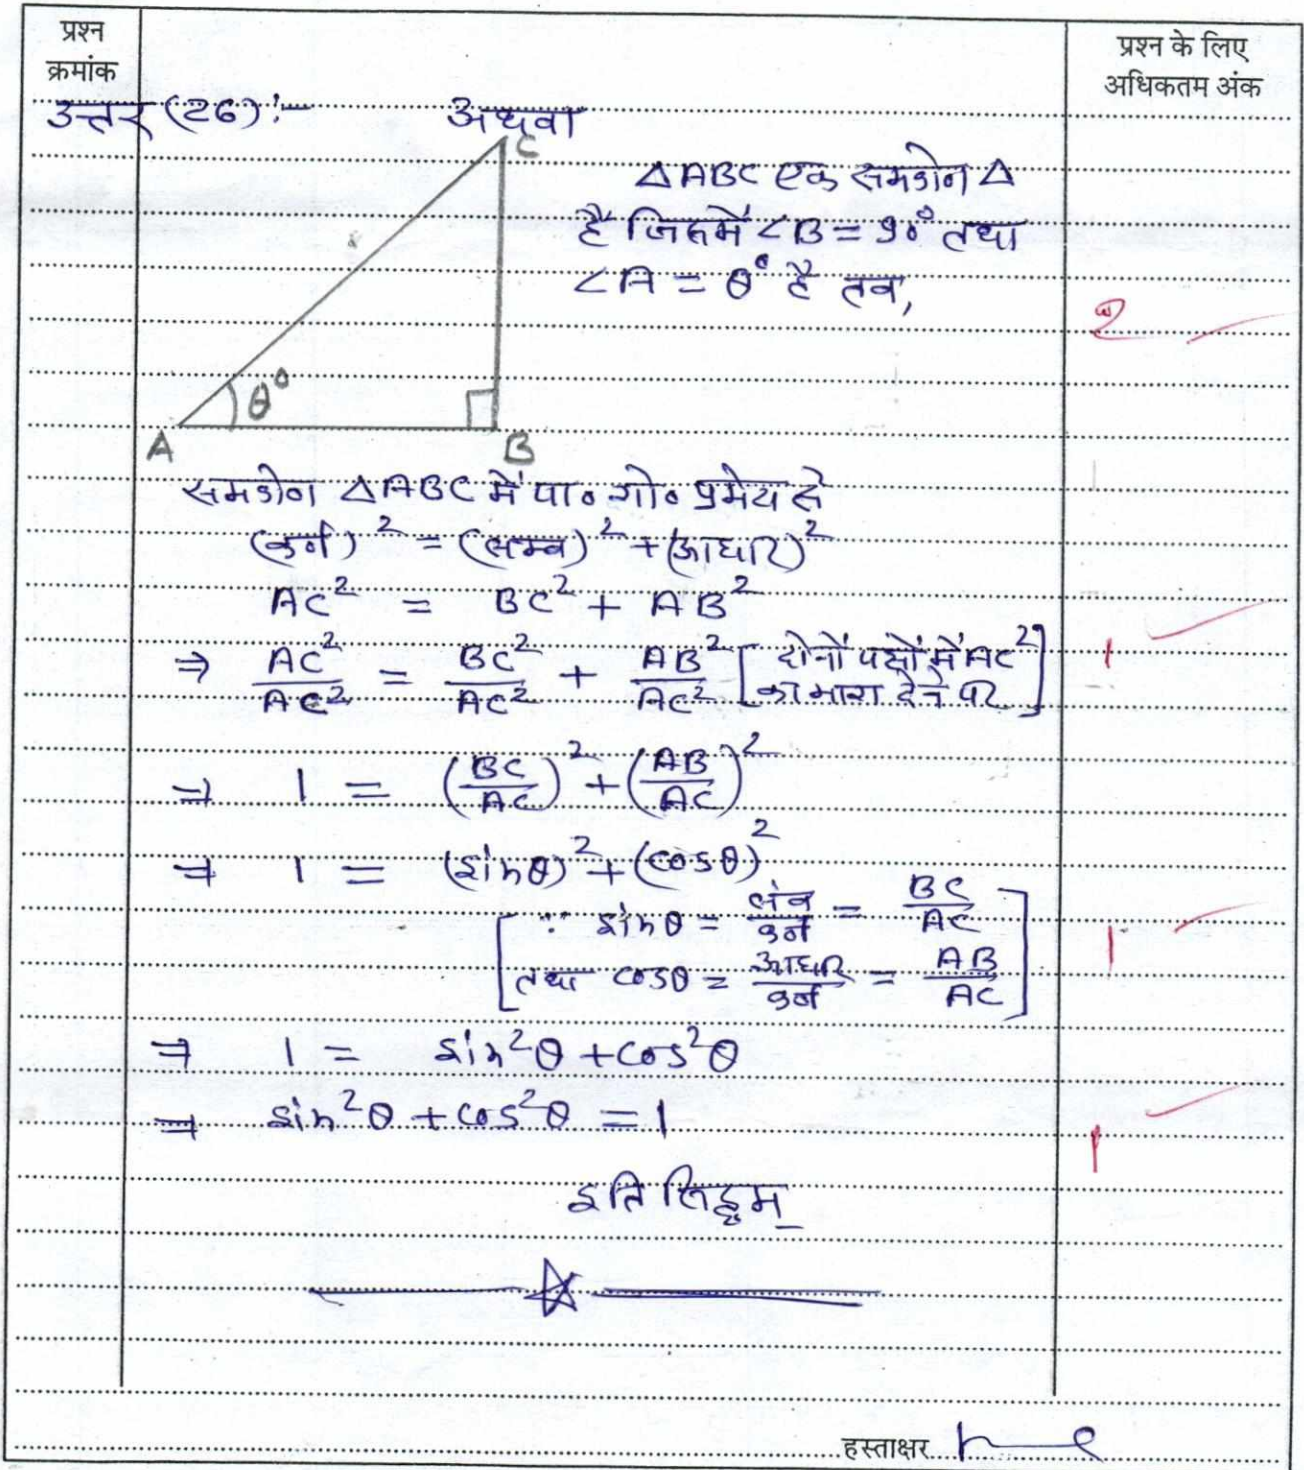 प्रश्न क्रमांक
प्रश्न के लिए अधिकतम अंक
उत्तर (26):- अथवा
C
△ABC एक समकोण △
है जिसमें ∠B = 90° तथा
∠A = θ° है तब,
2
θ°
A B
समकोण △ABC में पा० गो० प्रमेय से
(कर्ण)² = (लम्ब)² + (आधार)²
AC² = BC² + AB²
⇒ AC²/AC² = BC²/AC² + AB²/AC² [दोनों पक्षों में AC² का भाग देने पर]
1
⇒ 1 = (BC/AC)² + (AB/AC)²
⇒ 1 = (sinθ)² + (cosθ)²
[∵ sinθ = लंब/कर्ण = BC/AC
तथा cosθ = आधार/कर्ण = AB/AC]
1
⇒ 1 = sin²θ + cos²θ
⇒ sin²θ + cos²θ = 1
1
इति सिद्धम्
हस्ताक्षर